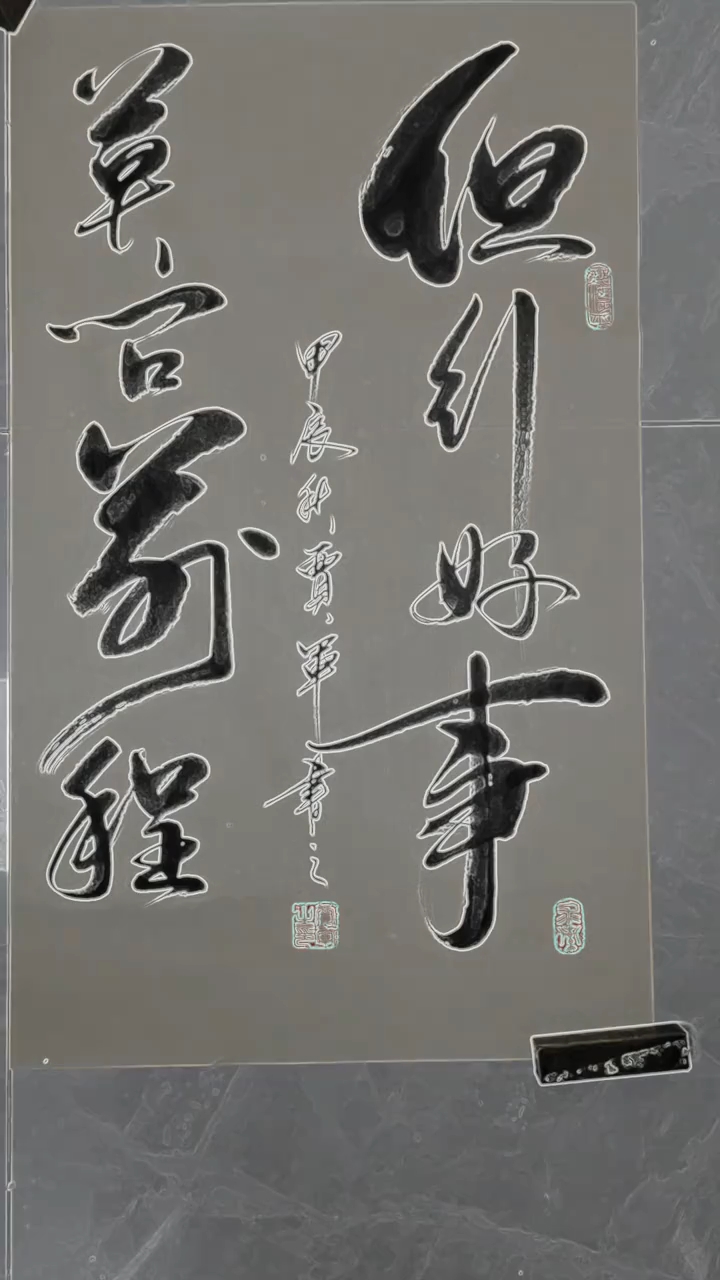 但行好事
莫问前程
甲辰秋賈軍書之